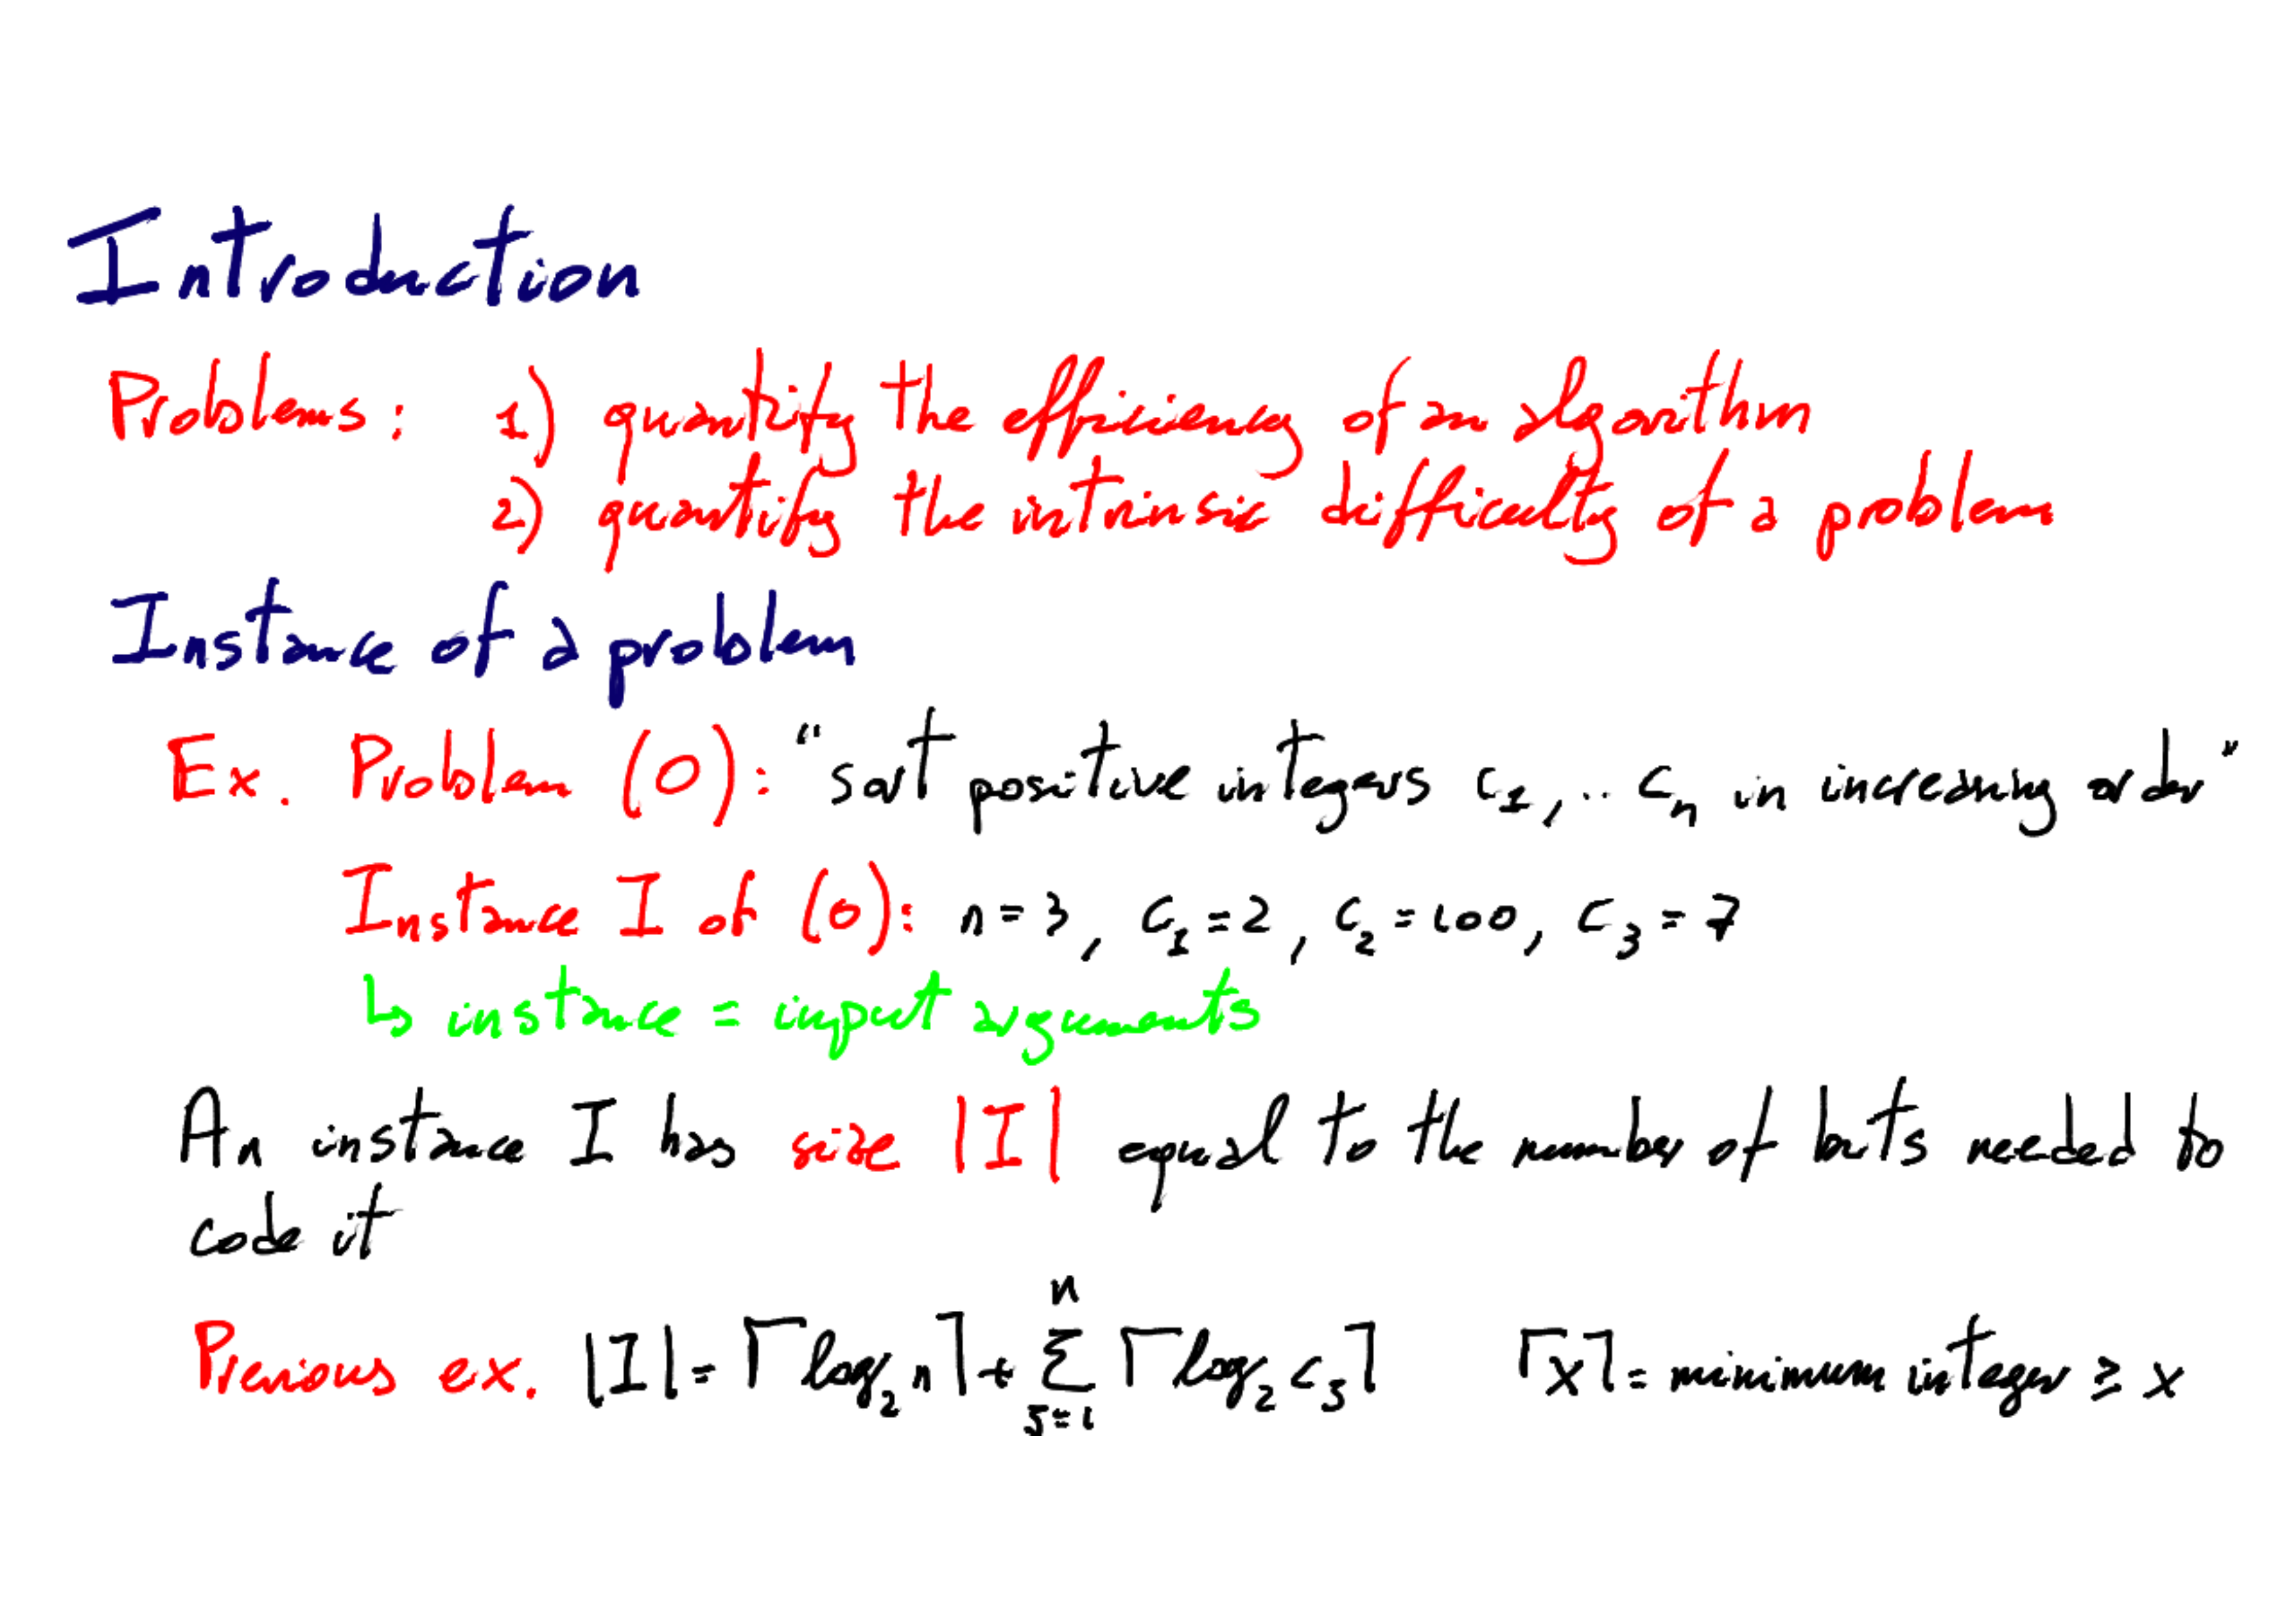 Introduction
Problems: 1) quantify the efficiency of an algorithm
2) quantify the intrinsic difficulty of a problem
Instance of a problem
Ex. Problem (0): "sort positive integers c₁,.. cₙ in increasing order"
Instance I of (0): n=3, c₁=2, c₂=100, c₃=7
↳ instance = input arguments
An instance I has size |I| equal to the number of bits needed to
code it
Previous ex. |I| = ⌈log₂ n⌉ + Σⁿⱼ₌₁ ⌈log₂ cⱼ⌉ ⌈x⌉ = minimum integer ≥ x